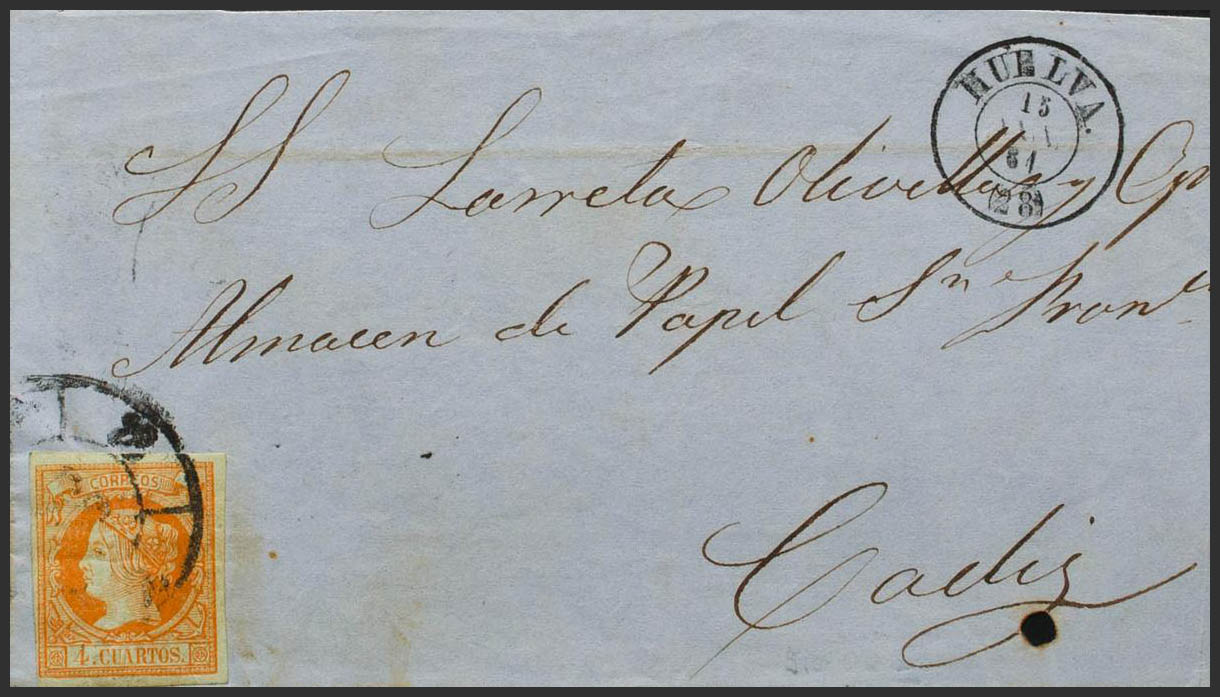 HUELVA.
15
61
(28)
SS Larreta Olivella y Cp
Almacen de Papel Sn Fran
Cadiz
CORREOS
4. CUARTOS.